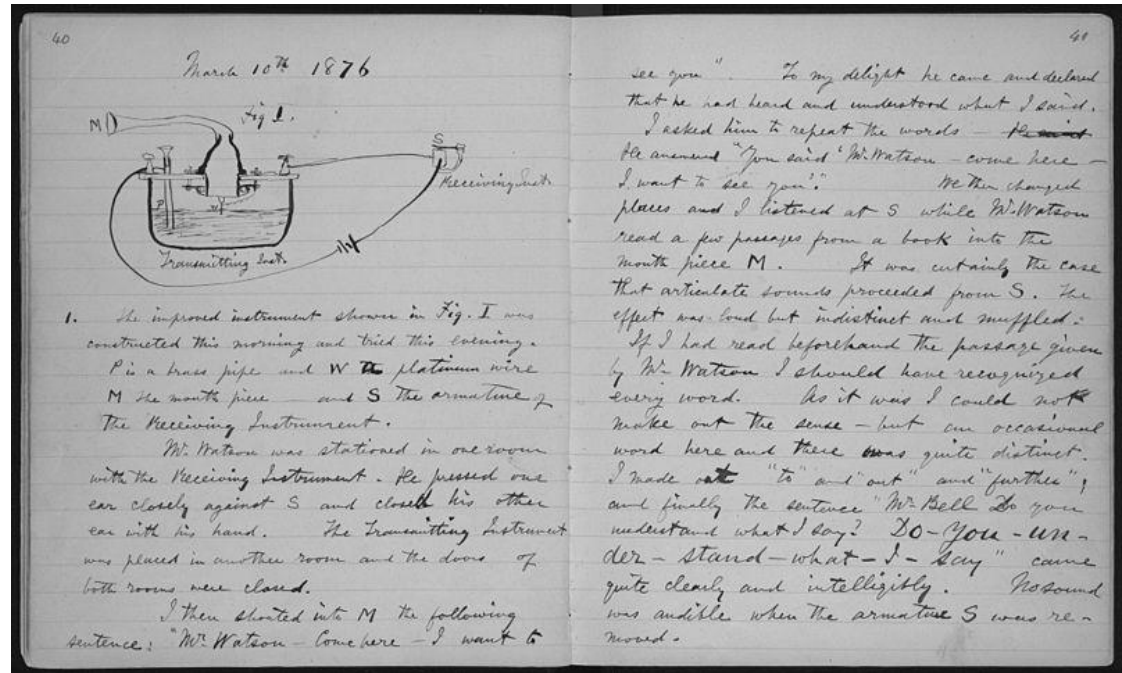 40
March 10th 1876
Fig 1.
M
S
Receiving Inst.
P
W
Transmitting Inst.
1. The improved instrument shown in Fig. I was
constructed this morning and tried this evening.
P is a brass pipe and W a platinum wire
M the mouth piece and S the armature of
the Receiving Instrument.
Mr. Watson was stationed in one room
with the Receiving Instrument. He pressed one
ear closely against S and closed his other
ear with his hand. The Transmitting Instrument
was placed in another room and the doors of
both rooms were closed.
I then shouted into M the following
sentence: "Mr. Watson – Come here – I want to
41
see you". To my delight he came and declared
that he had heard and understood what I said.
I asked him to repeat the words – He said
He answered "You said 'Mr. Watson – come here –
I want to see you'." We then changed
places and I listened at S while Mr. Watson
read a few passages from a book into the
mouth piece M. It was certainly the case
that articulate sounds proceeded from S. The
effect was loud but indistinct and muffled.
If I had read beforehand the passage given
by Mr. Watson I should have recognized
every word. As it was I could not
make out the sense – but an occasional
word here and there was quite distinct.
I made out "to" and "out" and "further";
and finally the sentence "Mr. Bell Do you
understand what I say? Do – you – un –
der – stand – what – I – say" came
quite clearly and intelligibly. No sound
was audible when the armature S was re –
moved.